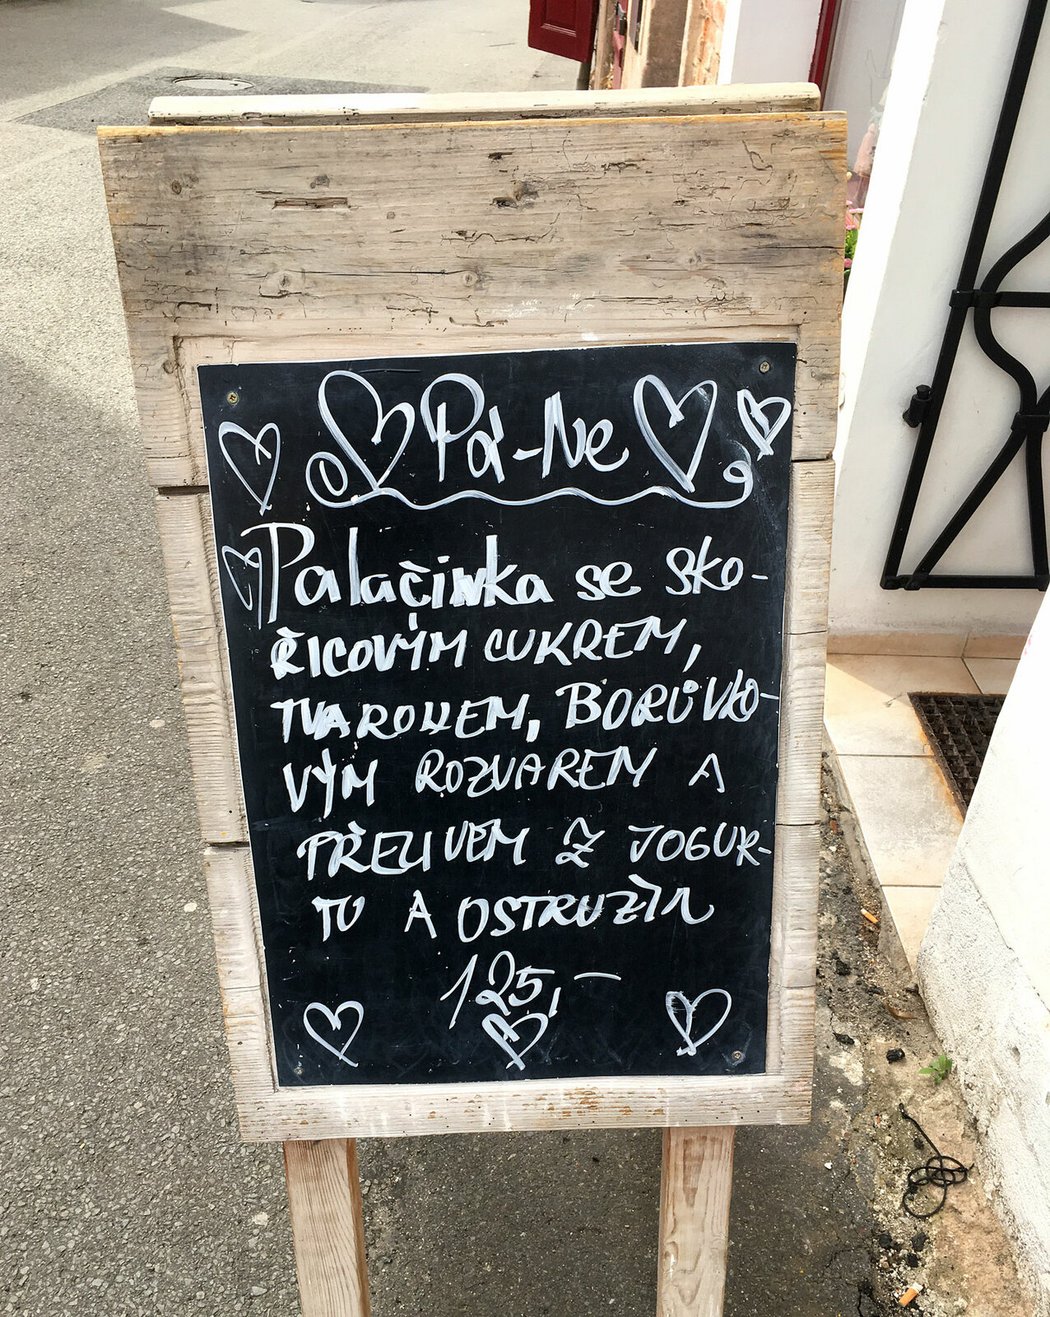 Pá-Ne
Palačinka se sko-
ŘICOVÝM CUKREM,
TVAROHEM, BORŮVKO-
VÝM ROZVAREM A
PŘELIVEM Z JOGUR-
TU A OSTRUŽIN
125,-